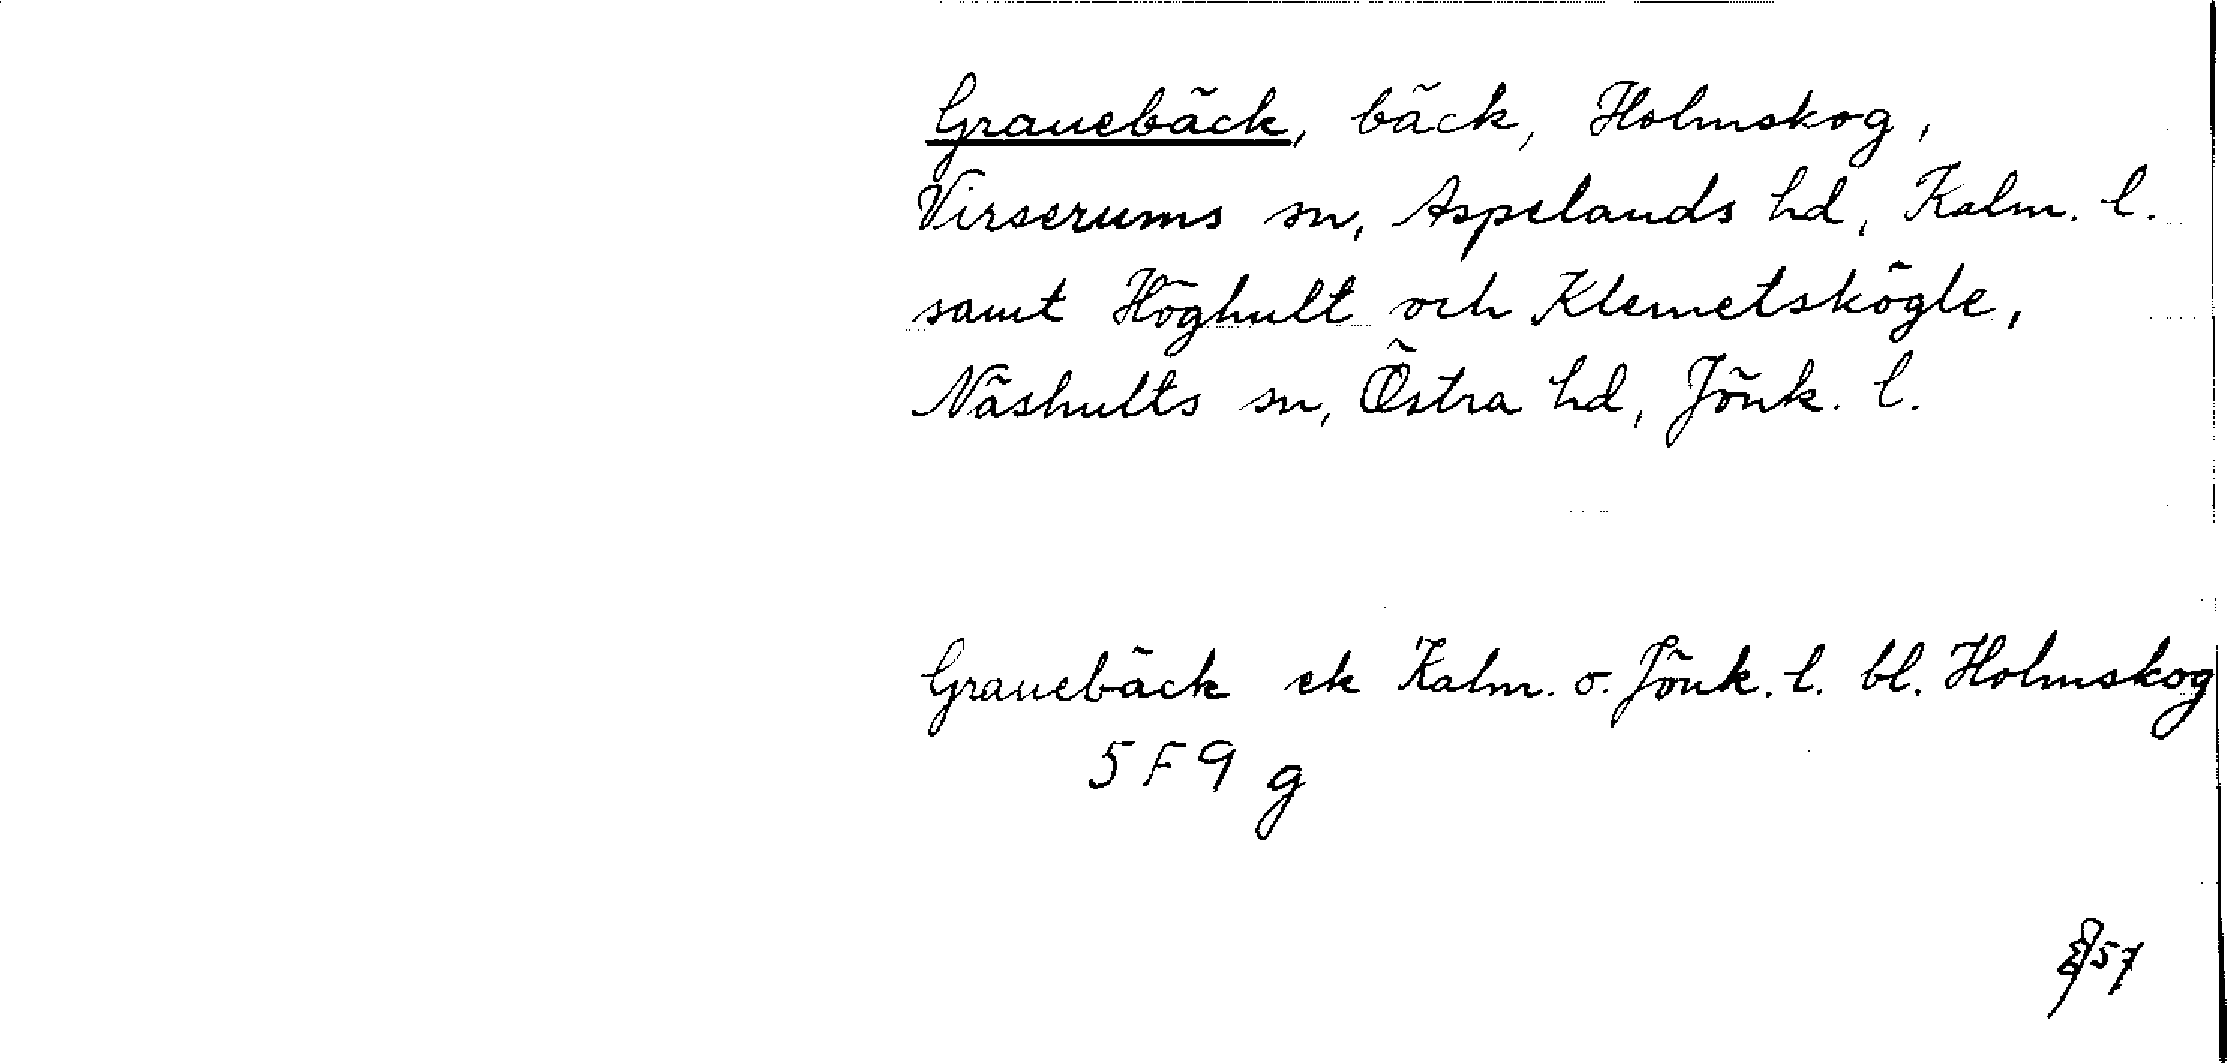 Granebäck, bäck, Holmskog,
Virserums sn, Aspelands hd, Kalm. l.
samt Höghult och Klemetskögle,
Näshults sn, Östra hd, Jönk. l.
Granebäck ek Kalm. o. Jönk. l. bl. Holmskog
5 F 9 g
57